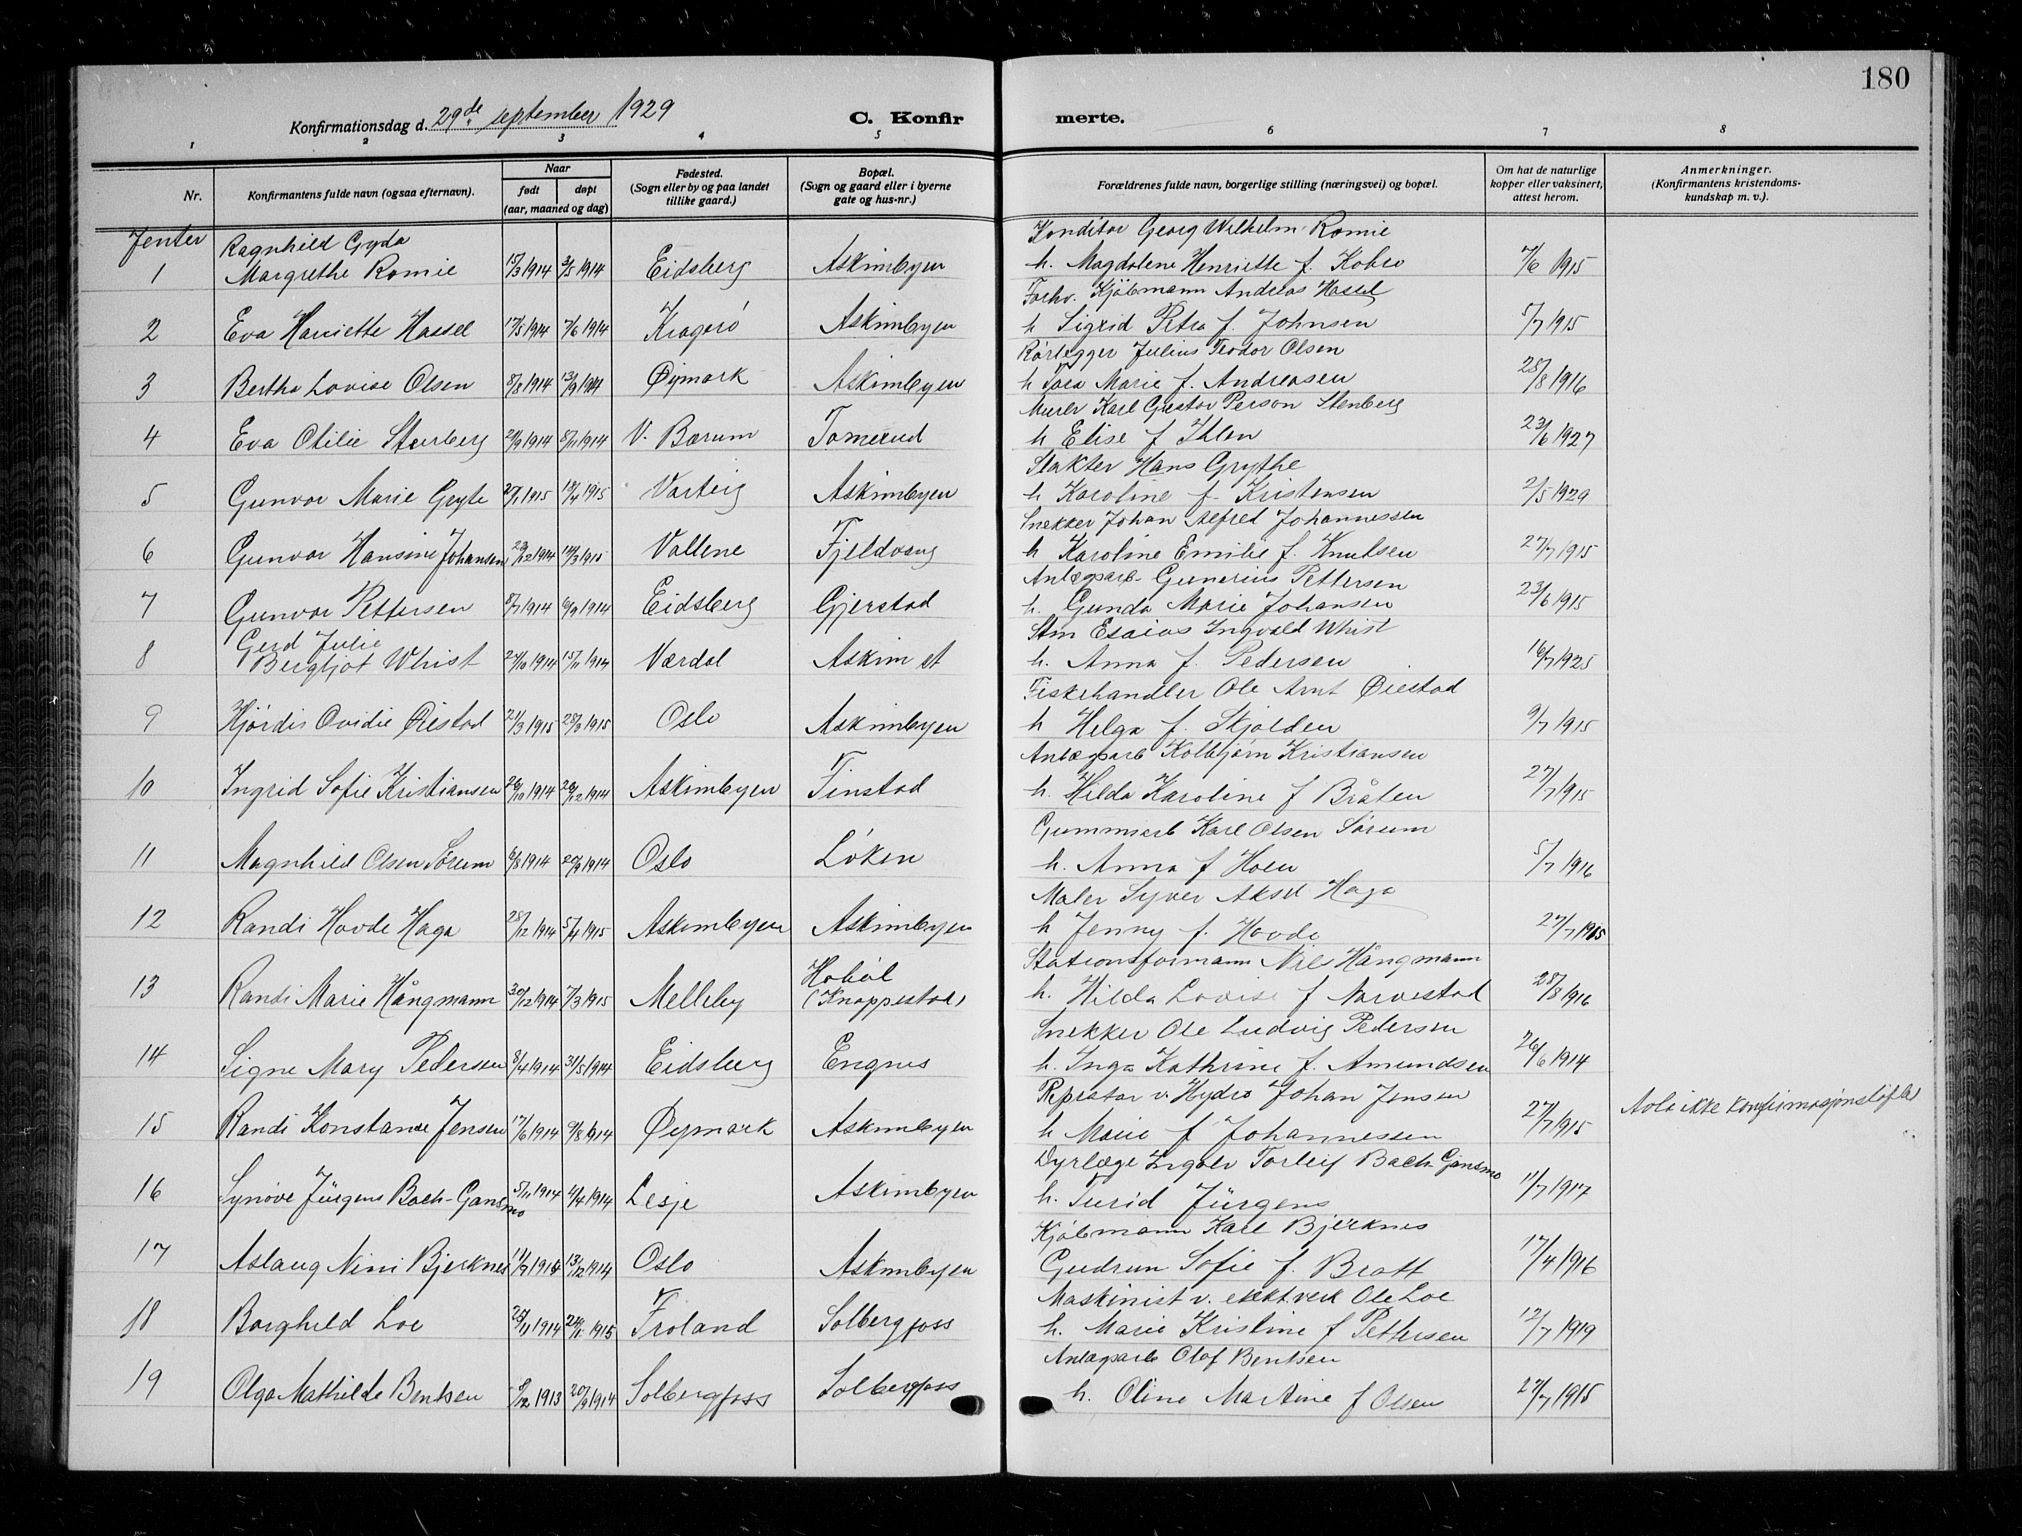 180
Konfirmationsdag d. 29de september 1929
C. Konfirmerte.
1 2 3 4 5 6 7 8
Nr. Konfirmantens fulde navn (ogsaa efternavn). Naar født døpt (aar, maaned og dag) Fødested. (Sogn eller by og paa landet tillike gaard.) Bopæl. (Sogn og gaard eller i byerne gate og hus-nr.) Forældrenes fulde navn, borgerlige stilling (næringsvei) og bopæl. Om hat de naturlige kopper eller vaksinert, attest herom. Anmerkninger. (Konfirmantens kristendoms-kundskap m. v.).
Jenter
Ragnhild Gyda Konditor Georg Wilhelm Romie
1 Margrethe Romie 15/3 1914 3/5 1914 Eidsberg Askimbyen h. Magdalene Henriette f. Kobro 7/6 1915
Forhv. Kjøbmann Andreas Hassel
2 Eva Harriette Hassel 17/5 1914 7/6 1914 Kragerö Askimbyen h Sigrid Petra f. Johnsen 5/7 1915
Rörlegger Julius Teodor Olsen
3 Bertha Lovise Olsen 8/8 1914 13/9 1914 Øymark Askimbyen h Tora Marie f. Andreasen 28/8 1916
Murer Karl Gustav Person Stenberg
4 Eva Otilie Stenberg 21/9 1914 8/11 1914 V. Bærum Tomerud h Elise f Ihlen 23/6 1927
Slakter Hans Grythe
5 Gunvor Marie Gryte 27/1 1915 18/4 1915 Varteig Askimbyen h Karoline f. Kristensen 2/5 1929
Snekker Johan Alfred Johannessen
6 Gunvor Hansine Johansen 23/12 1914 14/3 1915 Vollene Fjeldvang h Karoline Emilie f. Knutsen 27/7 1915
Anlægsarb. Gunerius Pettersen
7 Gunvor Pettersen 8/7 1914 6/9 1914 Eidsberg Gjerstad h. Gunda Marie Johansen 23/6 1915
Gerd Julie Stm Esaias Ingvald Whist
8 Bergljot Whist 24/10 1914 15/11 1914 Værdal Askim st h. Anna f. Pedersen 16/7 1925
Fiskehandler Ole Arnt Øiestad
9 Hjördis Ovidie Øistad 21/3 1915 28/3 1915 Oslo Askimbyen h Helga f. Skjolden 9/7 1915
Anlægsarb Kolbjørn Kristiansen
10 Ingrid Sofie Kristiansen 26/10 1914 26/12 1914 Askimbyen Finstad h. Hilda Karoline f Bråten 27/7 1915
Gummiarb Karl Olsen Sörum
11 Magnhild Olsen Sörum 6/8 1914 20/9 1914 Oslo Löken h. Anna f Hoen 5/7 1916
Maler Syver Aksel Haga
12 Randi Hovde Haga 28/12 1914 5/4 1915 Askimbyen Askimbyen h Jenny f. Hovde 27/7 1915
Stationsformann Nils Hångmann
13 Randi Marie Hångmann 30/12 1914 7/3 1915 Melleby Hoböl (Knappestad) h. Hilda Lovise f Narvestad 28/8 1916
Snekker Ole Ludvig Pedersen
14 Signe Mary Pedersen 8/4 1914 31/5 1914 Eidsberg Engnes h. Inga Kathrine f. Amundsen 26/6 1914
Johan Jensen
15 Randi Konstanse Jensen 17/6 1914 9/8 1914 Øymark Askimbyen h Marie f Johannessen 27/7 1915 ikke konfirmasjonsløfte
Dyrlæge Ingolv Torleif Bach-Gansmo
16 Synöve Jürgens Bach-Gansmo 5/11 1914 4/4 1914 Lesje Askimbyen h. Turid Jürgens 11/7 1917
Kjøbmann Karl Bjerknes
17 Aslaug Nini Bjerknes 14/7 1914 13/12 1914 Oslo Askimbyen Gudrun Sofie f. Bratt 17/4 1916
Maskinist v. elektverk Ole Loe
18 Borghild Loe 25/11 1914 24/1 1915 Froland Solbergfoss h. Marie Kristine f Pettersen 12/7 1919
Anlægsarb Olof Bentsen
19 Olga Mathilde Bentsen 8/12 1913 20/9 1914 Solbergfoss Solbergfoss h. Oline Martine f Olsen 27/7 1915